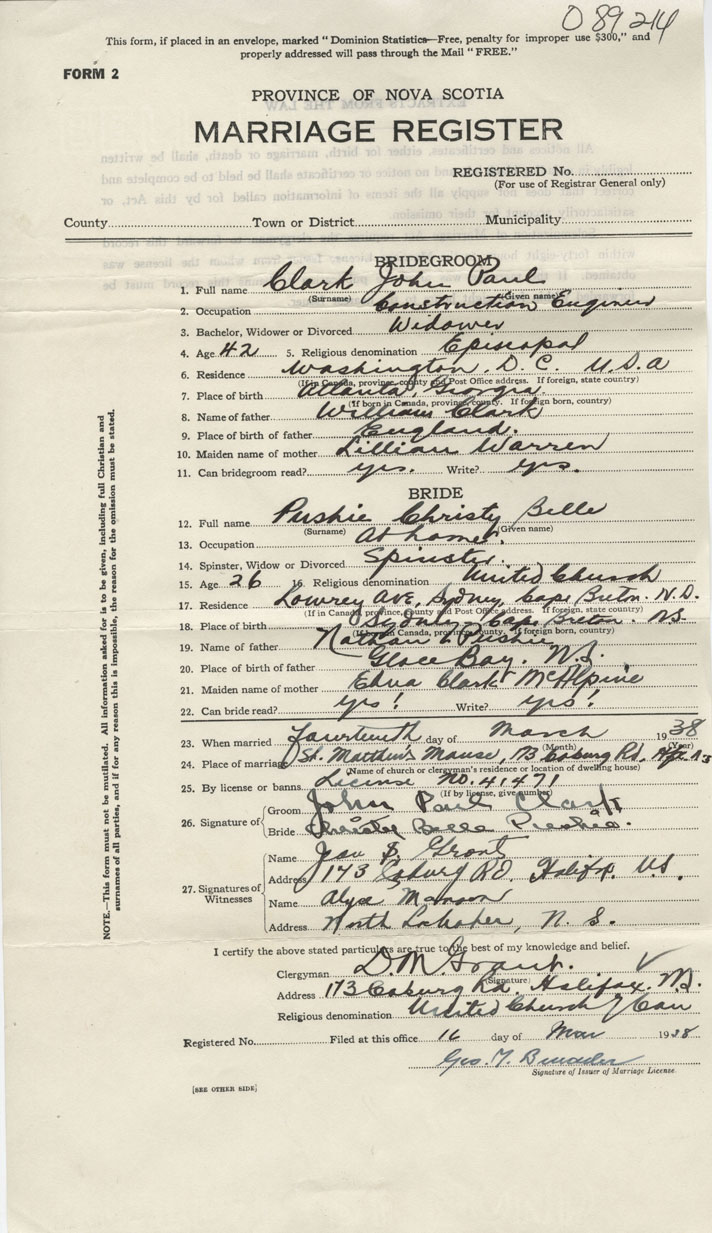 089214
This form, if placed in an envelope, marked "Dominion Statistics—Free, penalty for improper use $300," and
properly addressed will pass through the Mail "FREE."
FORM 2
PROVINCE OF NOVA SCOTIA
MARRIAGE REGISTER
REGISTERED No.
(For use of Registrar General only)
County Town or District Municipality
BRIDEGROOM
1. Full name Clark John Paul
(Surname) (Given name)
2. Occupation Construction Engineer
3. Bachelor, Widower or Divorced Widower
4. Age 42 5. Religious denomination Episcopal
6. Residence Washington, D.C. U.S.A
(If in Canada, province, county and Post Office address. If foreign, state country)
7. Place of birth Atlanta, Georgia
(If born in Canada, province, county. If foreign born, country)
8. Name of father William Clark
9. Place of birth of father England.
10. Maiden name of mother Lillian Warren
11. Can bridegroom read? yes. Write? yes.
BRIDE
12. Full name Pushie Christy Belle
(Surname) (Given name)
13. Occupation at home.
14. Spinster, Widow or Divorced Spinster.
15. Age 26 16. Religious denomination United Church
17. Residence Lowrey Ave, Sydney, Cape Breton. N.S.
(If in Canada, province, County and Post Office address. If foreign, state country)
18. Place of birth Sydney, Cape Breton. NS.
(If born in Canada, province, county. If foreign born, country)
19. Name of father Nathan Pushie
20. Place of birth of father Glace Bay. N.S.
21. Maiden name of mother Edna Clark McAlpine
22. Can bride read? yes! Write? yes!
23. When married fourteenth day of March 1938
(Month) (Year)
24. Place of marriage St. Matthew's Manse, 173 Coburg Rd.
(Name of church or clergyman's residence or location of dwelling house)
25. By license or banns License No. 41471
(If by license, give number)
26. Signature of Groom John Paul Clark
Bride Christy Belle Pushie.
27. Signatures of Witnesses
Name Grant
Address 173 Coburg Rd. Halifax. N.S.
Name
Address North Lochaber, N.S.
I certify the above stated particulars are true to the best of my knowledge and belief.
Clergyman D.M. Grant.
(Signature)
Address 173 Coburg Rd. Halifax. N.S.
Religious denomination United Church of Can
Registered No. Filed at this office 16 day of Mar 1938
Geo. T.
Signature of Issuer of Marriage License.
[SEE OTHER SIDE]
NOTE.—This form must not be mutilated. All information asked for is to be given, including full Christian and
surnames of all parties, and if for any reason this is impossible, the reason for the omission must be stated.